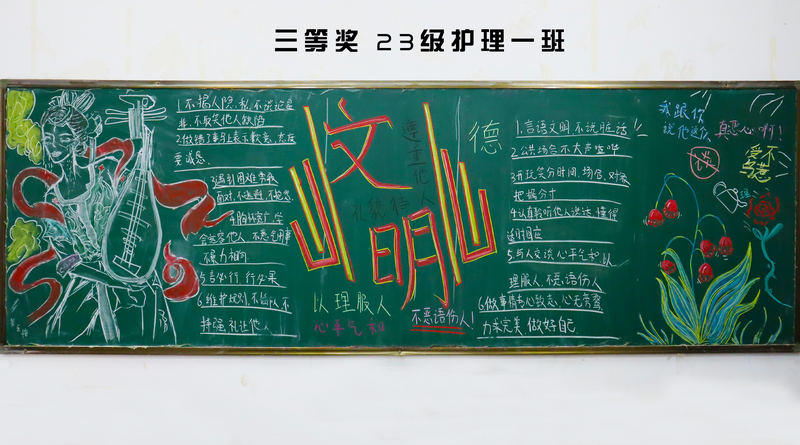 三等奖 23级护理一班
1.不揭人隐私,不说论是
非,不取笑他人缺陷
2.做错了事马上表示歉意,态度
要诚恳.
3.遇到困难勇敢
面对,不逃避,不抱怨
4.胸怀宽广,学
会宽容他人 不恶
不暴力相向
5.言必行,行必果
6.维护规则,不给人不
持强 礼让他人
文明
遵
礼貌待人
以理服人
心平气和
不恶语伤人!
德
1.言语文明 不说脏话!!
2.公共场合不大声喧哗
3.开玩笑分时间,场合,对象
把握分寸
4.认真聆听他人说话,懂得
适时回应
5.与人交谈心平气和 以
理服人,不恶语伤人
6.做事情专心致志,心无旁鹜
力求完美 做好自己
我跟你
说他这人
真恶心啊!
爱不